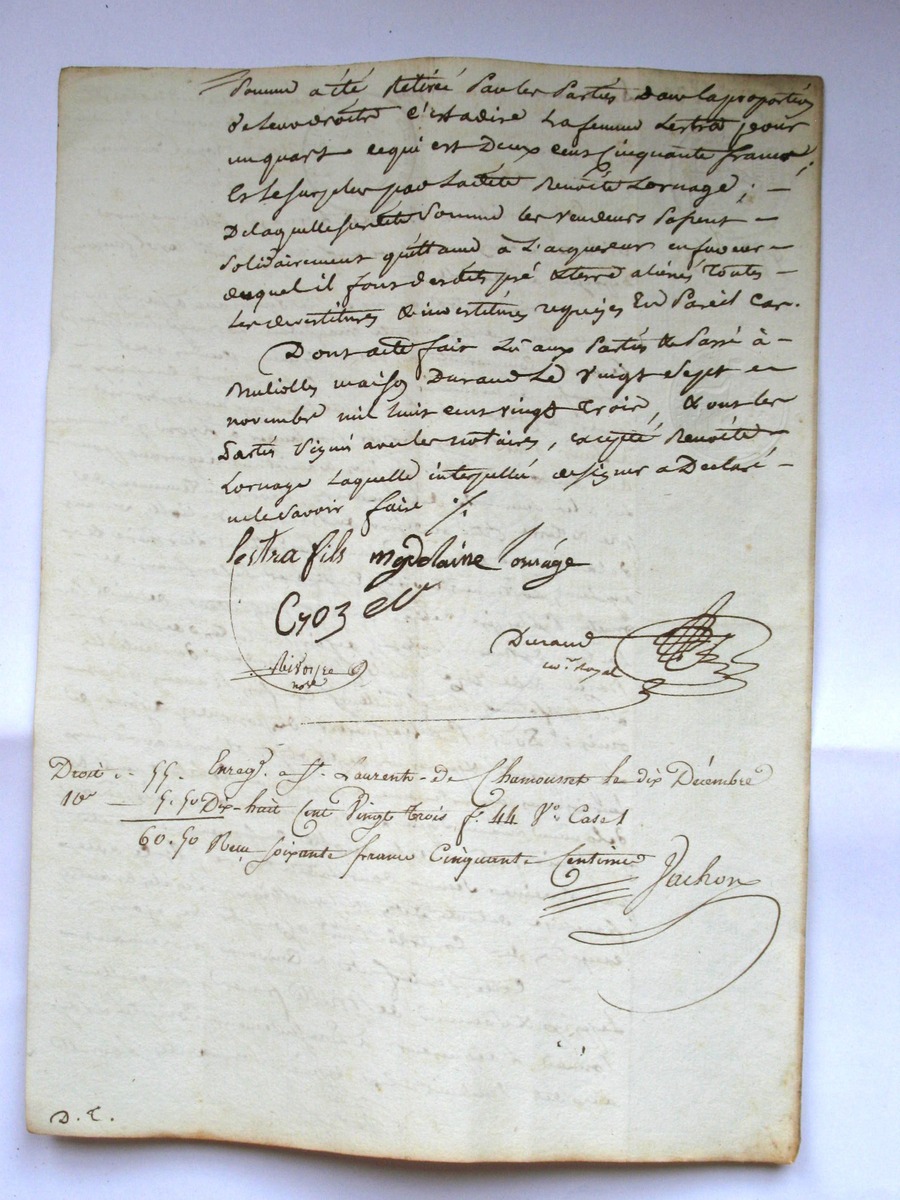 somme a été Retirée Par les Parties Dans la proportion
de leurs droits C'est a dire La femme Lestra pour
un quart ce qui est Deux cens Cinquante francs;
Et le surplus par Ladite Benoite Lornage; -
De laquelle susdite Somme les vendeurs Passent -
Solidairement quittance à L'acquereur en faveur -
duquel il font desdits pré & terre alienés Toutes -
Les devestitures & investitures requises En Pareil Cas.
Dont acte fait Lû aux Parties & Passé à -
Brullolles maison Durand Le vingt Sept en
novembre mil huit cens vingt trois, & ont les
Parties Signé avec les notaires, excepté Benoite -
Lornage Laquelle interpellée de signer a Declaré -
ne le Savoir faire ./.
lestra fils magdelaine lornage
Durand
no.re Royal
nore
Droit .. 55. Enregé. a St. Laurent-de Chamousset le dix Décembre
10e — 5.50 Dix-huit Cent Vingt trois f. 44 Vo. Case 1
60.50 Reçu soixante francs Cinquante Centimes
Jachon
D. T.